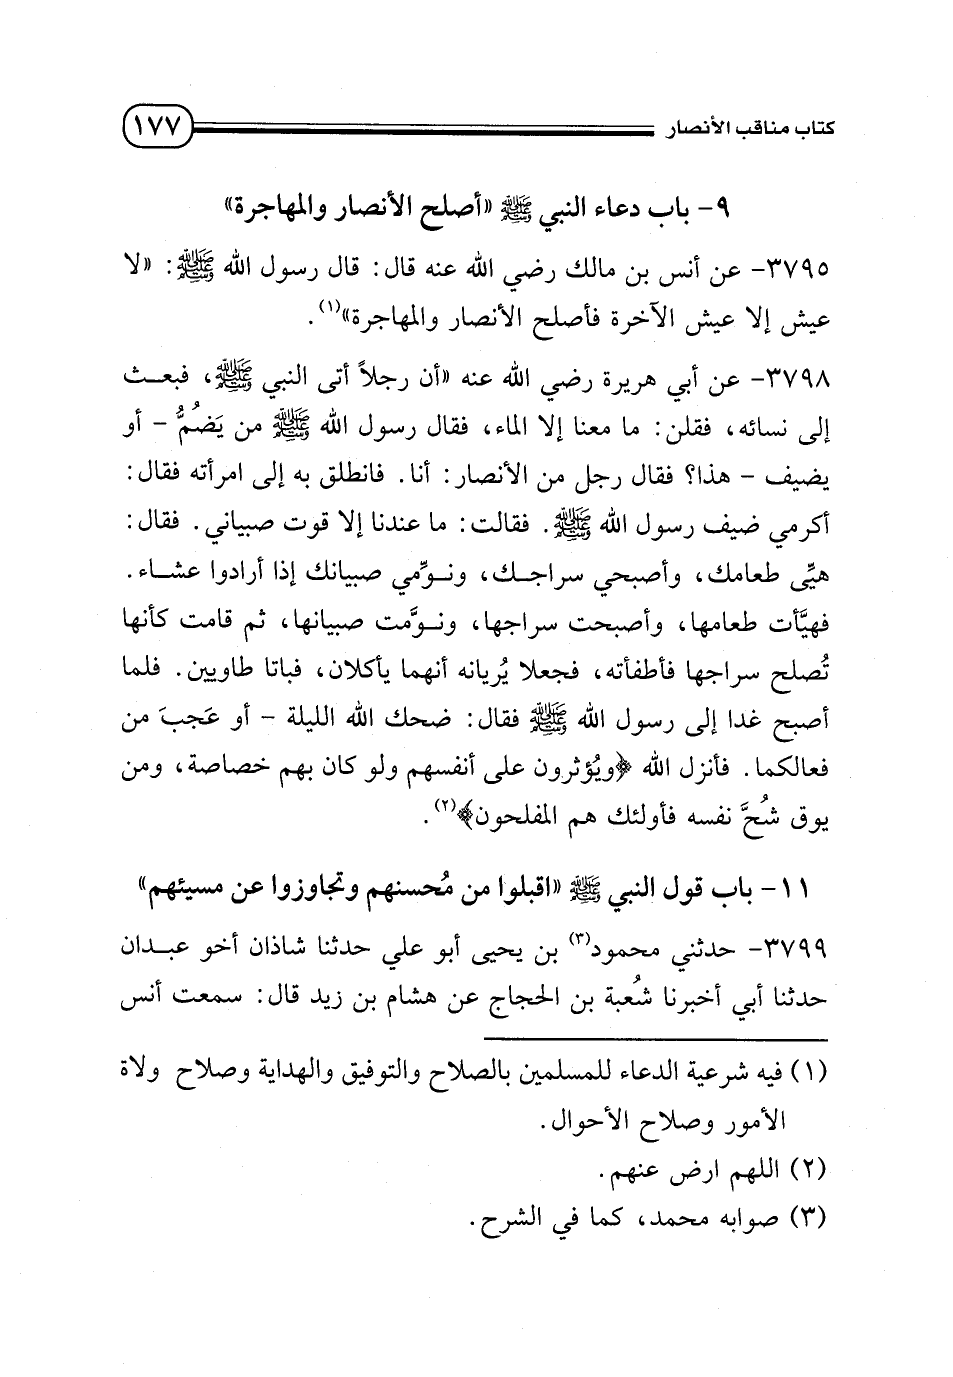 كتاب مناقب الأنصار ١٧٧
٩- باب دعاء النبي ﷺ «أصلح الأنصار والمهاجرة»
٣٧٩٥- عن أنس بن مالك رضي الله عنه قال: قال رسول الله ﷺ: «لا
عيش إلا عيش الآخرة فأصلح الأنصار والمهاجرة»(١).
٣٧٩٨- عن أبي هريرة رضي الله عنه «أن رجلاً أتى النبي ﷺ، فبعث
إلى نسائه، فقلن: ما معنا إلا الماء، فقال رسول الله ﷺ من يَضُمُّ - أو
يضيف - هذا؟ فقال رجل من الأنصار: أنا. فانطلق به إلى امرأته فقال:
أكرمي ضيف رسول الله ﷺ. فقالت: ما عندنا إلا قوت صبياني. فقال:
هيِّى طعامك، وأصبحي سراجك، ونوِّمي صبيانك إذا أرادوا عشاء.
فهيَّأت طعامها، وأصبحت سراجها، ونوَّمت صبيانها، ثم قامت كأنها
تُصلح سراجها فأطفأته، فجعلا يُريانه أنهما يأكلان، فباتا طاويين. فلما
أصبح غدا إلى رسول الله ﷺ فقال: ضحك الله الليلة - أو عَجبَ من
فعالكما. فأنزل الله ﴿ويُؤثرون على أنفسهم ولو كان بهم خصاصة، ومن
يوق شُحَّ نفسه فأولئك هم المفلحون﴾(٢).
١١- باب قول النبي ﷺ «اقبلوا من مُحسنهم وتجاوزوا عن مسيئهم»
٣٧٩٩- حدثني محمود(٣) بن يحيى أبو علي حدثنا شاذان أخو عبدان
حدثنا أبي أخبرنا شُعبة بن الحجاج عن هشام بن زيد قال: سمعت أنس
(١) فيه شرعية الدعاء للمسلمين بالصلاح والتوفيق والهداية وصلاح ولاة
الأمور وصلاح الأحوال.
(٢) اللهم ارض عنهم.
(٣) صوابه محمد، كما في الشرح.